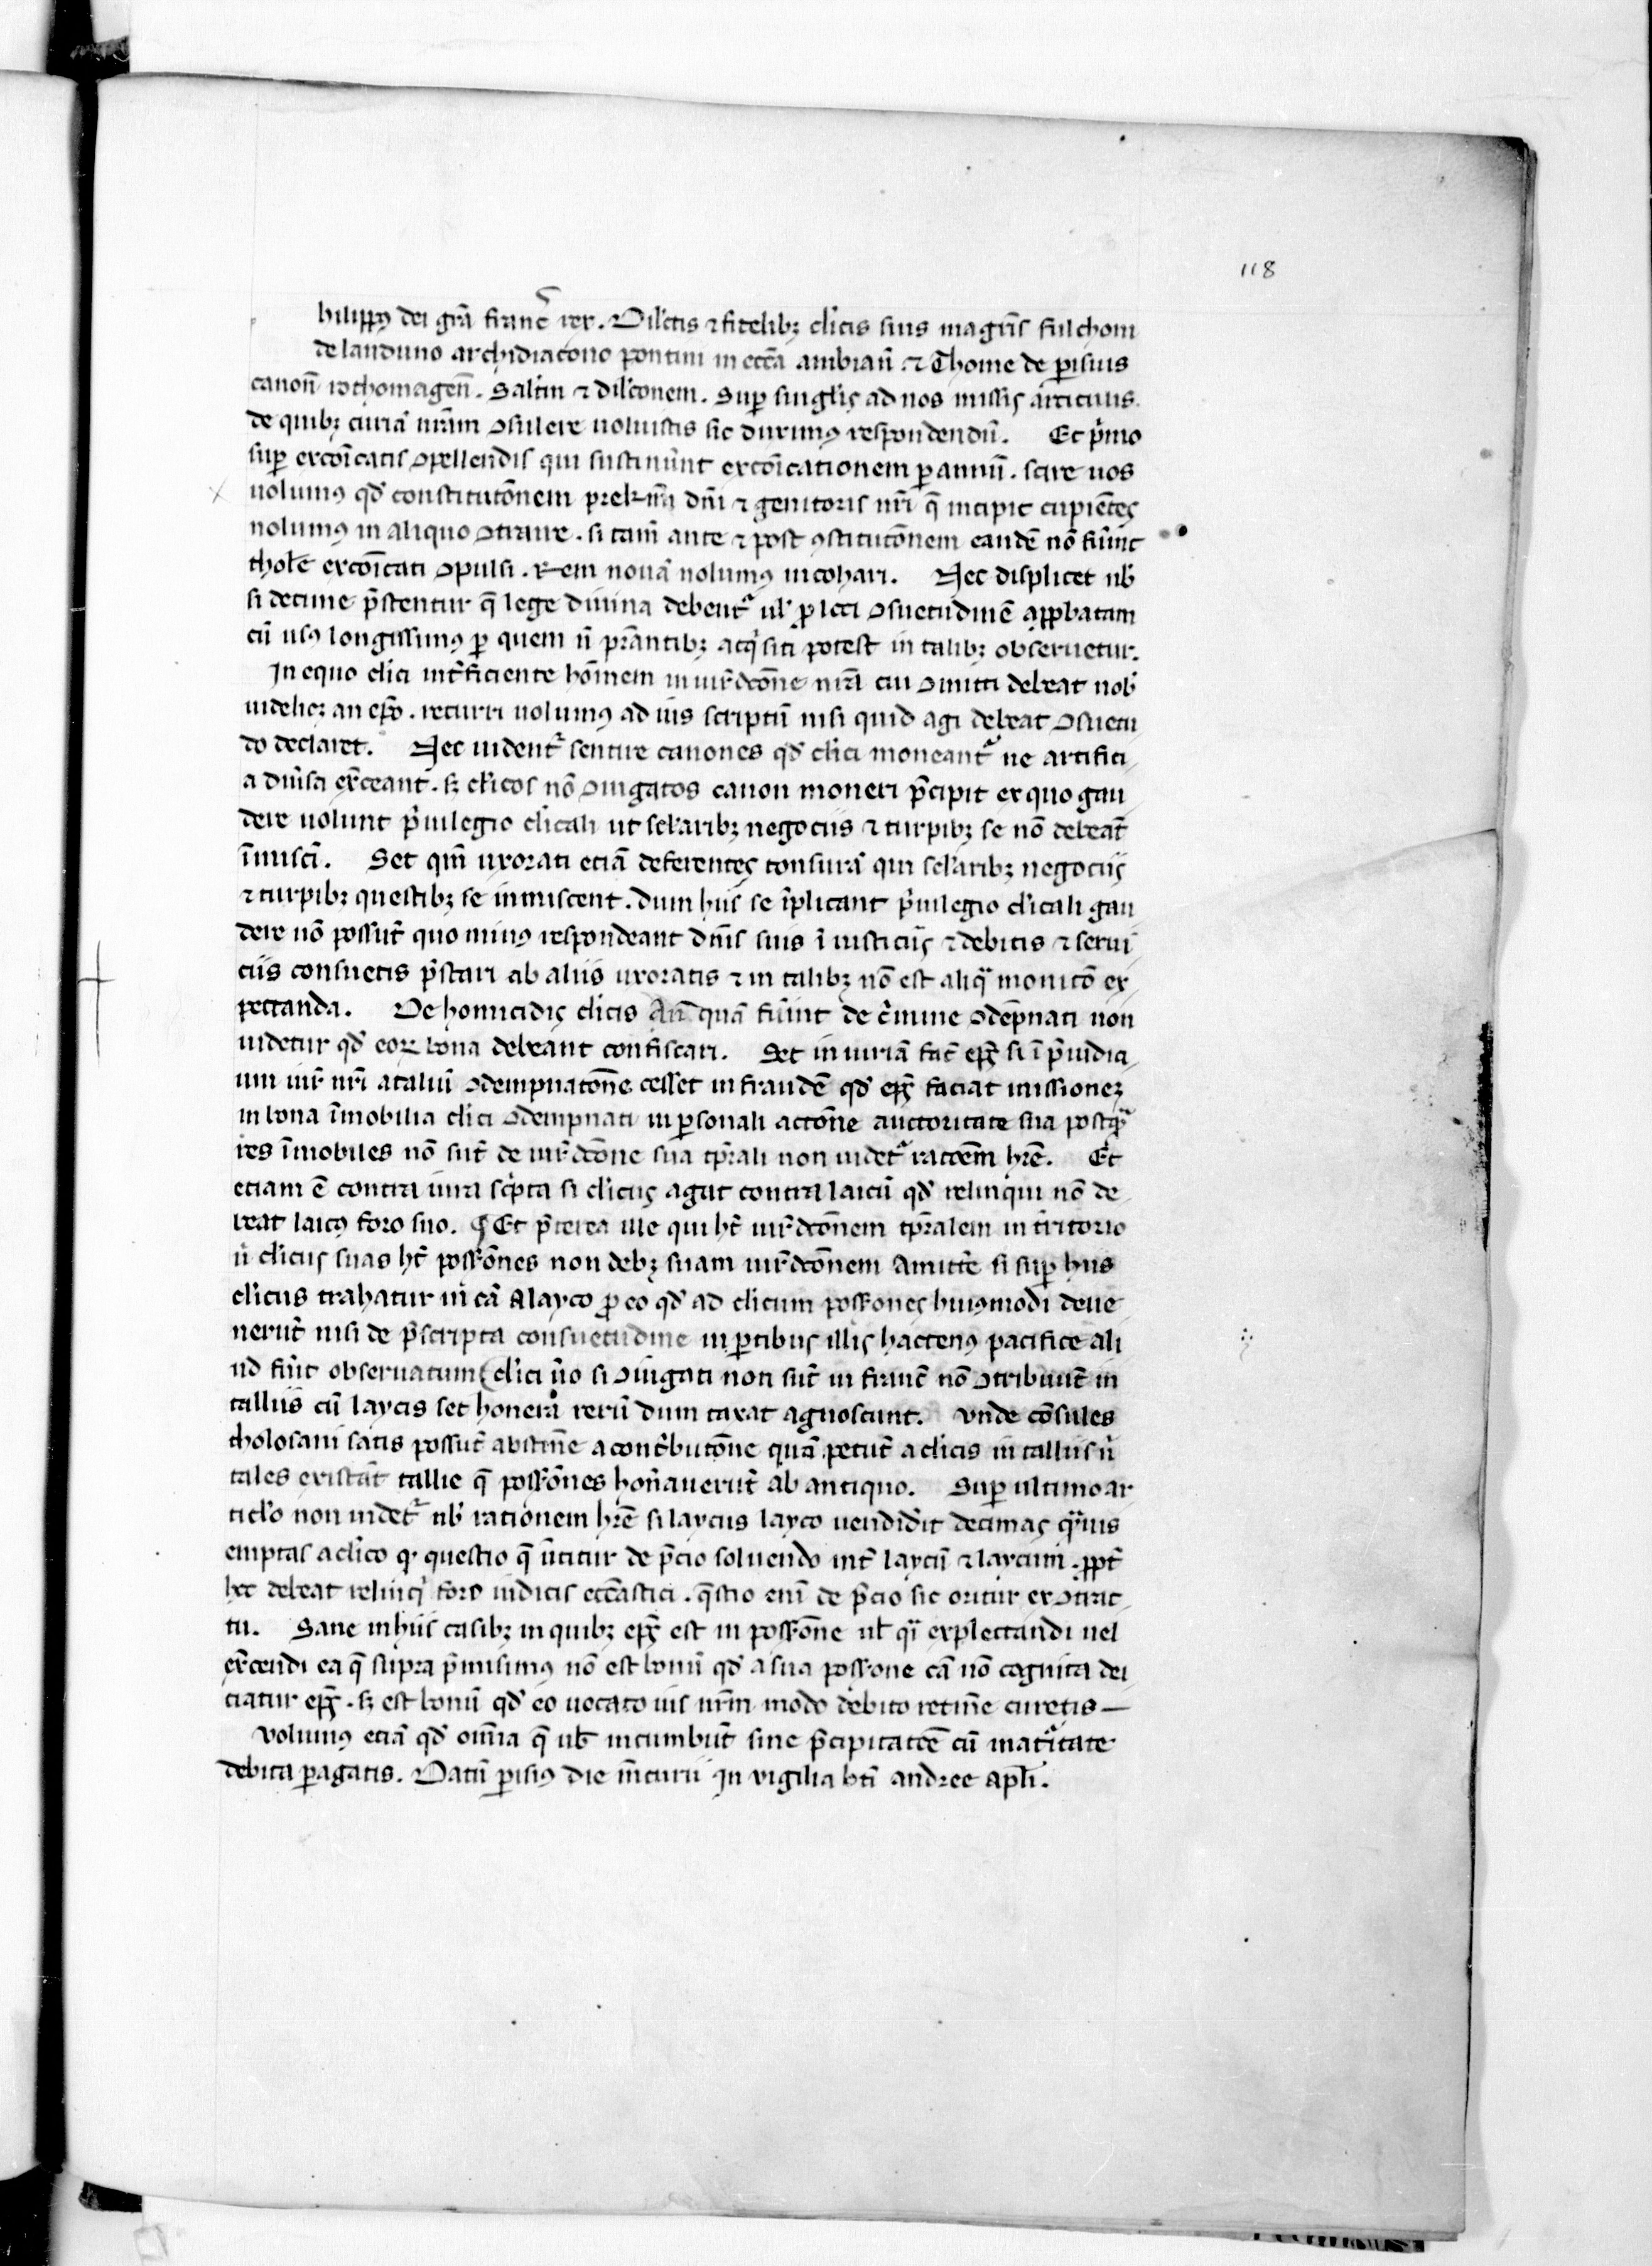 118
hilippꝰ dei grã francͨ rex. Dilc̃tis ⁊ fidelibꝫ cl'icis suis magr̃is fulchoni
de landuno archidiacono pontiui in eccã ambian̄ ⁊ Thome de ꝑisius
canon̄ rothomagen̄. Salt̃m ⁊ dilc̃onem. Suꝑ singl'is ad nos missis articulis
de quibꝫ curiã nr̃am ꝯsulere uoluistis sic duximꝰ respondendũ. Et p̃mo
suꝑ excõicatis ꝯpellendis qui sustinũnt excõicationem ꝑ annũ. scire uos
uolumꝰ qd̃ constitutõnem dñi ⁊ genitoris nr̃i q̃ incipit cupiẽtes
nolumꝰ in aliquo ꝯtraire. si tam̃ ante ⁊ post ꝯstitutõnem eandẽ nõ fũint
thol'e excõicati ꝯpulsi. Rem nouã nolumꝰ incohari. Nec displicet nb̃
si decime p̃stentur q̃ lege diuina debent᷑ ul' ꝓ loci ꝯsuetudinẽ apꝓbatam
cũ usꝰ longissimꝰ ꝑ quem ũ acq̃siti potest in talibꝫ obseruetur.
In equo cl'ici int̃ficiente hoĩnem in iur̃dcõne nr̃a cui ꝯmitti debeat nob̃
uidelicꝫ an ep̃o. recurri uolumꝰ ad ius scriptũ nisi quid agi debeat ꝯsuetu
do declaret. Nec uident᷑ sentire canones qd̃ cl'ici moneant᷑ ne artifici
a diũsa ex̃ceant. sꝫ cl'icos nõ ꝯiugatos canon moneri p̃cipit ex quo gau
dere uolunt p̃uilegio cl'icali ut sel'aribꝫ negociis ⁊ turpibꝫ se nõ debeãt
ĩmisc̃i. Set qm̃ uxorati etiã deferentes tonsurã qui sel'aribꝫ negociis
⁊ turpibꝫ questibꝫ se inmiscent. dum hiis se ĩplicant p̃uilegio cl'icali gau
dere nõ possũt quo minꝰ respondeant dñis suis ĩ iusticiis ⁊ debitis ⁊ serui
ciis consuetis p̃stari ab aliis uxoratis ⁊ in talibꝫ nõ est aliq̃ monitõ ex
pectanda. De homicidis cl'icis An̄ quã fũint de c̃mine ꝯdẽpnati non
uidetur qd̃ eoꝝ bona debeant confiscari. Set iniuriã fac̃ ep̃s si ĩ p̃iudici
um iur̃ nr̃i ꝯdempnatõne cesset in fraudẽ qd̃ ep̃s faciat missionẽ
in bona ĩmobilia cl'ici ꝯdempnati in ꝑsonali actõne auctoritate sua postq̃
res ĩmobiles nõ sũt de iur̃dcõne sua tp̃rali non uidet᷑ racõem hr̃e. Et
etiam ẽ contra iura sc̃pta si cl'icus agat contra laicũ qd̃ relinqui nõ de
beat laicꝰ foro suo. ¶ Et p̃terea ille qui hr̃ iur̃dcõnem tp̃ralem in t̃ritorio
ũ cl'icus suas hr̃ poss̃ones non debꝫ suam iur̃dcõnem Amitt̃e si suꝑ hiis
cl'icus trahatur in cã A layco ꝓ eo qd̃ ad cl'icum poss̃ones huiꝰmodi deue
nerũt nisi de p̃scripta consuetudine in ꝑtibus illis hactenꝰ pacifice ali
ud fũit obseruatum cl'ici ũo si ꝯiugati non sũt in franc̃ nõ ꝯtribuũt in
talliis cũ laycis set honera rerũ dum taxat agnoscunt. Vnde cõsules
tholosani satis possũt abstin̄e a cont̃butõne quã petũt a cl'icis in talliis ũ
tales existãt tallie q̃ poss̃ones hon̄auerũt ab antiquo. Suꝑ ultimo ar
ticl'o non uidet᷑ nb̃ rationem hr̃e si laycus layco uendiderit decimas qͣuis
emptas a cl'ico questio q̃ ũtitur de p̃cio soluendo int̃ laycũ ⁊ laycum. ꝓpt̃
hec debeat relinq̃ foro iudicis ecc̃astici. q̃stio enĩ de p̃cio sic oritur ex ꝯtrac
tu. Sane in hiis casibꝫ in quibꝫ ep̃s est in poss̃one ul' qͣi explectandi uel
ex̃cendi ea q̃ supra p̃misimꝰ nõ est bonũ qd̃ a sua poss̃one cã nõ cognita dei
ciatur ep̃s. sꝫ est bonũ qd̃ eo uocato ius nr̃m modo debito retin̄e curetis —
Volumꝰ etiã qd̃ om̃ia q̃ ub̃ incumbũt sine p̃cipitacõe cũ mat᷑itate
debita ꝑagatis. Datũ ꝑisiꝰ die m̃curii In vigilia bt̃i andree apl'i.